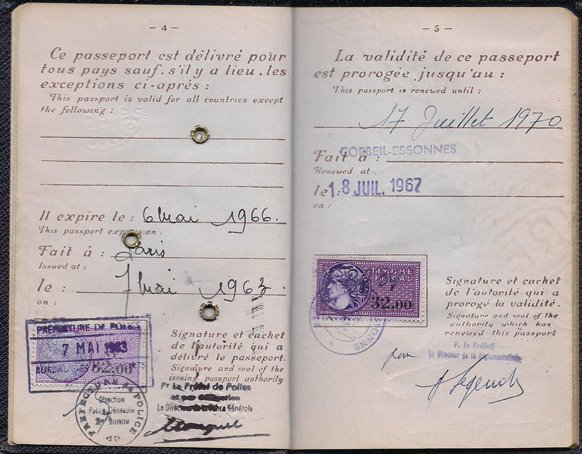 – 4 –
Ce passeport est délivré pour
tous pays sauf, s'il y a lieu, les
exceptions ci-après :
This passport is valid for all countries except
the following :
Il expire le : 6 mai 1966.
This passport expires on :
Fait à : Paris
Issued at :
le : 7 mai 1963
on :
PRÉFECTURE DE POLICE
7 MAI 1963
32.00
Direction
Police Générale
Bureau
PREFECTURE DE POLICE
Signature et cachet
de l'autorité qui a
délivré le passeport.
Signature and seal of the
issuing passport authority
Pr Le Préfet de Police
et par délégation
Le Directeur de la Police Générale
– 5 –
La validité de ce passeport
est prorogée jusqu'au :
This passport is renewed until :
17 Juillet 1970
CORBEIL-ESSONNES
Fait à :
Renewed at
le : 18 JUIL. 1967
on :
32.00
Signature et cachet
de l'autorité qui a
prorogé la validité.
Signature and seal of the
authority which has
renewed this passport
P. le Préfet